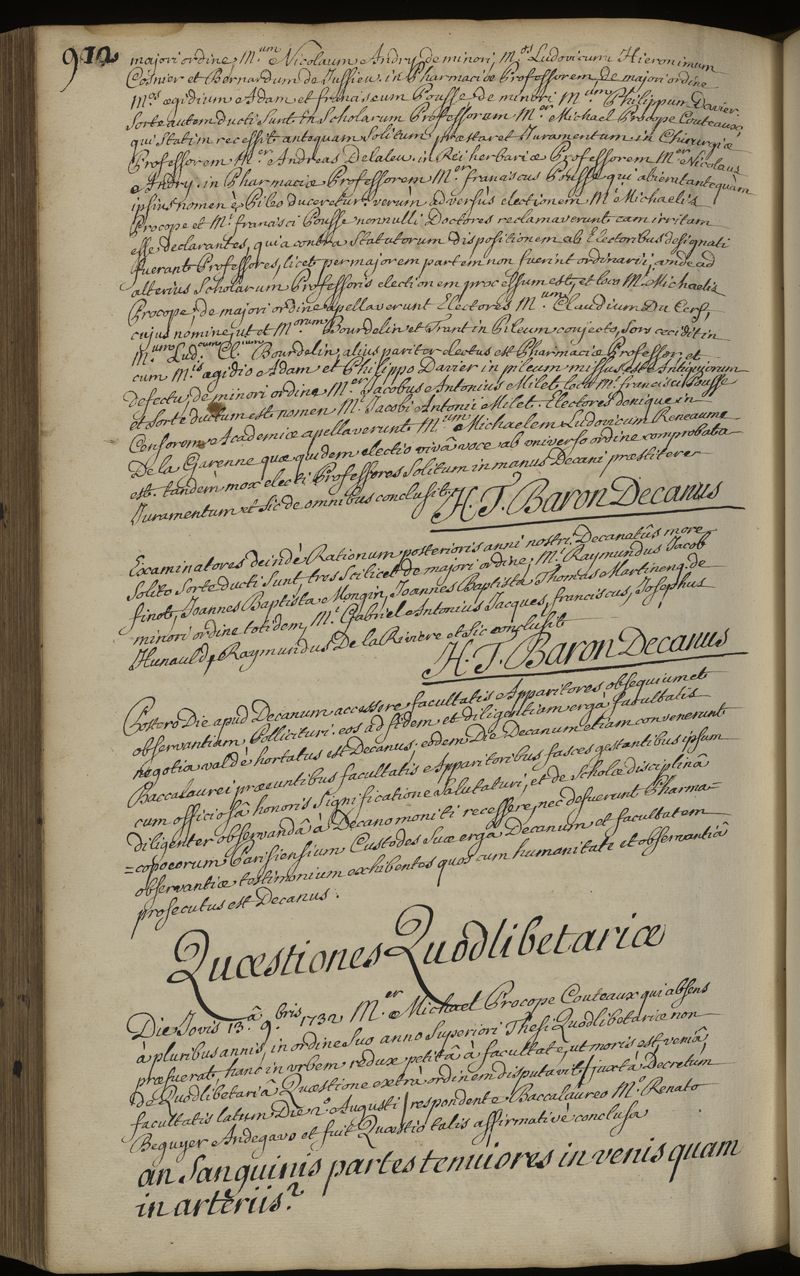 912
majori ordine, M.um Nicolaum Andry, de minori, M.os Ludovicum Hieronimum
Cosnier et Bernardum de Jussieu. in Pharmaciæ Professorem de majori ordine
M.os ægidium Adam et franciscum Pousse, de minori M.um Philippum Davier.
Sorte autem ducti sunt in Scholarum Professorem M.er Michael Procope Couteaux,
qui statim recessit antequam solitum præstaret Juramentum, in Chirurgiæ
Professorem M.er Andreas Delaleu. in Rei herbariæ Professorem M.er Nicolaus
Andry. in Pharmaciæ Professorem M.er franciscus Pousse qui abierat antequam
ipsius nomen è Pileo duceretur. verum adversus electionem M.i Michaelis
Procope et M.i francisci Pousse nonnulli Doctores reclamaverunt eam irritam
esse declarantes, quia contra statutorum dispositionem ab Electoribus designati
fuerant Professores, licet per majorem partem non fuerint ordinarii, unde ad
alterius Scholarum Professoris electionem processum est, et loco M.i Michaelis
Procope, de majori ordine apellaverunt Electores M.um Claudium Du Cerf,
cujus nomine, ut et M.orum Bourdelin et Trant in Pileum conjecto, sors cecidit in
M.um Lud.cum Cl.ium Bourdelin, alius pariter electus est Pharmaciæ Professor, et
cum M.is ægidio Adam et Philippo Davier in pileum missus est Antiquiorum
defectu, de minori ordine M.er Jacobus Antonius Milet, loco M.i francisci Pousse
et sorte ductum est nomen M.i Jacobi Antonii Milet. Electores denique in
Censorem Academiæ apellaverunt M.um Michaelem Ludovicum Reneaume
De la Garenne quæ quidem electio vivâ voce ab universo ordine comprobata
est. tandem mox electi Professores solitum in manus Decani præstitere
Juramentum et sic de omnibus conclusit
H. T. Baron Decanus
Examinatores deindè Rationum posterioris anni nostri Decanatûs more
solito sorte ducti sunt, tres scilicet de majori ordine, M.i Raymundus Jacob
finot, Joannes Baptista Mongin, Joannes Baptista Thomas Martinenq. de
minori ordine totidem, M.i Gabriel Antonius Jacques, franciscus, Josephus
Hunauld, Raymundus De la Riviere et sic conclusit
H. T. Baron Decanus
Postero Die apud Decanum accessere facultatis Apparitores obsequium et
observantiam Polliciturì. eos ad fidem et diligentiam ergà facultatis
negotia valdè hortatus est Decanus. eodem Die Decanum etiam convenerunt
Baccalaurei præeuntibus facultatis Apparitoribus fasces gestantibus ipsum
cum officiosâ honoris significatione salutaturi, et de Scholæ disciplinâ
diligenter observandâ à Decano moniti recessere, nec defuerunt Pharma=
=copoeorum Parisiensium Custodes suæ ergà Decanum et facultatem
observantiæ testimonium exhibentes quos cum humanitate et observantiâ
prosecutus est Decanus.
Quæstiones Quodlibetariæ
Die Jovis 13.â 9.bris 1732 M.er Michael Procope Couteaux qui absens
à pluribus annis, in ordine suo anno superiori Thesi Quodlibetariæ non
præfuerat, hanc in urbem redux petitâ à facultate, ut moris est veniâ,
de Quodlibetariâ Quæstione extrà ordinem disputavit (juxtà Decretum
facultatis latum Die 2.o Augusti) respondente Baccalaureo M.o Renato
Beguyer Andegavo et fuit Quæstio talis affirmativè conclusa
an Sanguinis partes tenuiores in venis quam
in arteriis?